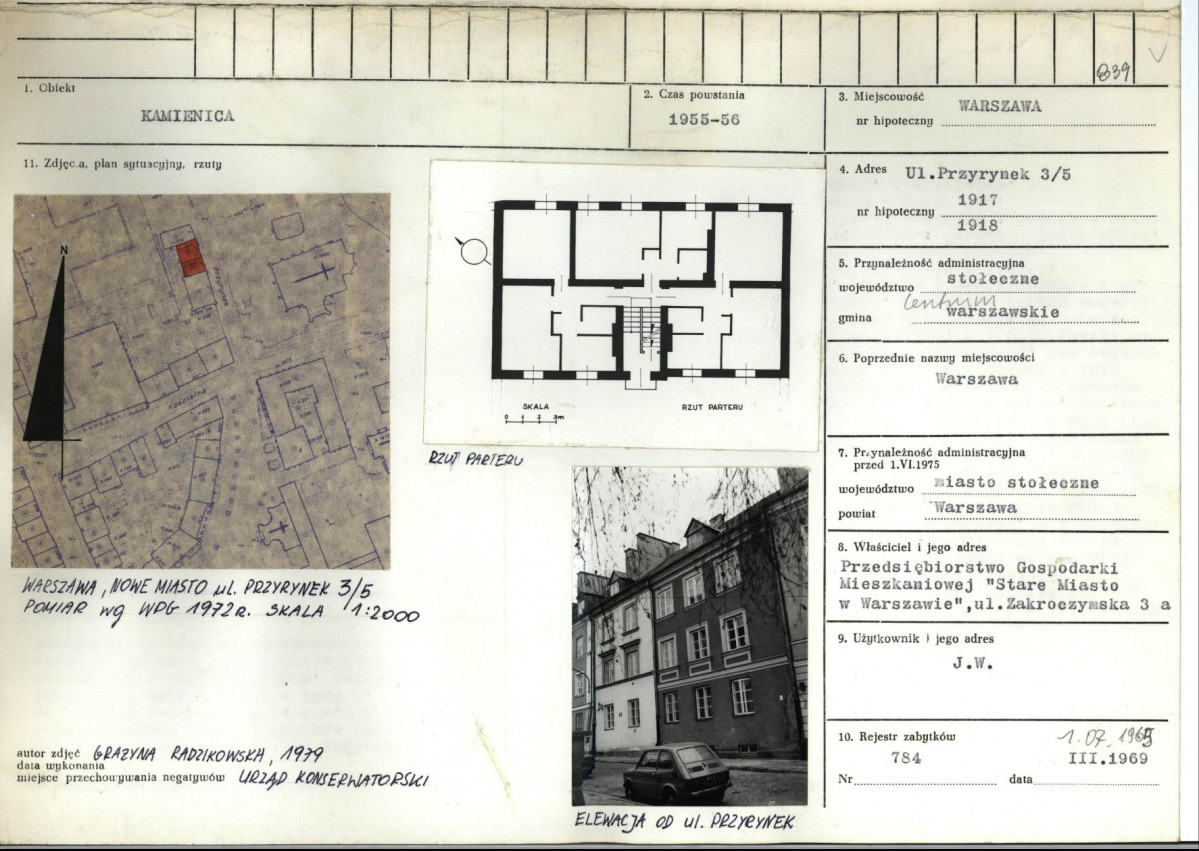 839
1. Obiekt
KAMIENICA
2. Czas powstania
1955-56
3. Miejscowość WARSZAWA
nr hipoteczny
11. Zdjęcia, plan sytuacyjny, rzuty
4. Adres Ul.Przyrynek 3/5
1917
nr hipoteczny
1918
5. Przynależność administracyjna
województwo stołeczne
Centrum
gmina warszawskie
6. Poprzednie nazwy miejscowości
Warszawa
7. Przynależność administracyjna
przed 1.VI.1975
województwo miasto stołeczne
powiat Warszawa
8. Właściciel i jego adres
Przedsiębiorstwo Gospodarki
Mieszkaniowej "Stare Miasto
w Warszawie",ul.Zakroczymska 3 a
9. Użytkownik i jego adres
J.W.
10. Rejestr zabytków
1.07.1965
784 III.1969
Nr data
N
Kościelna
SKALA
0 1 2 3m
RZUT PARTERU
RZUT PARTERU
WARSZAWA, NOWE MIASTO ul. PRZYRYNEK 3/5
POMIAR wg WPG 1972r. SKALA 1:2000
autor zdjęć GRAŻYNA RADZIKOWSKA, 1979
data wykonania
miejsce przechowywania negatywów URZĄD KONSERWATORSKI
ELEWACJA OD ul. PRZYRYNEK